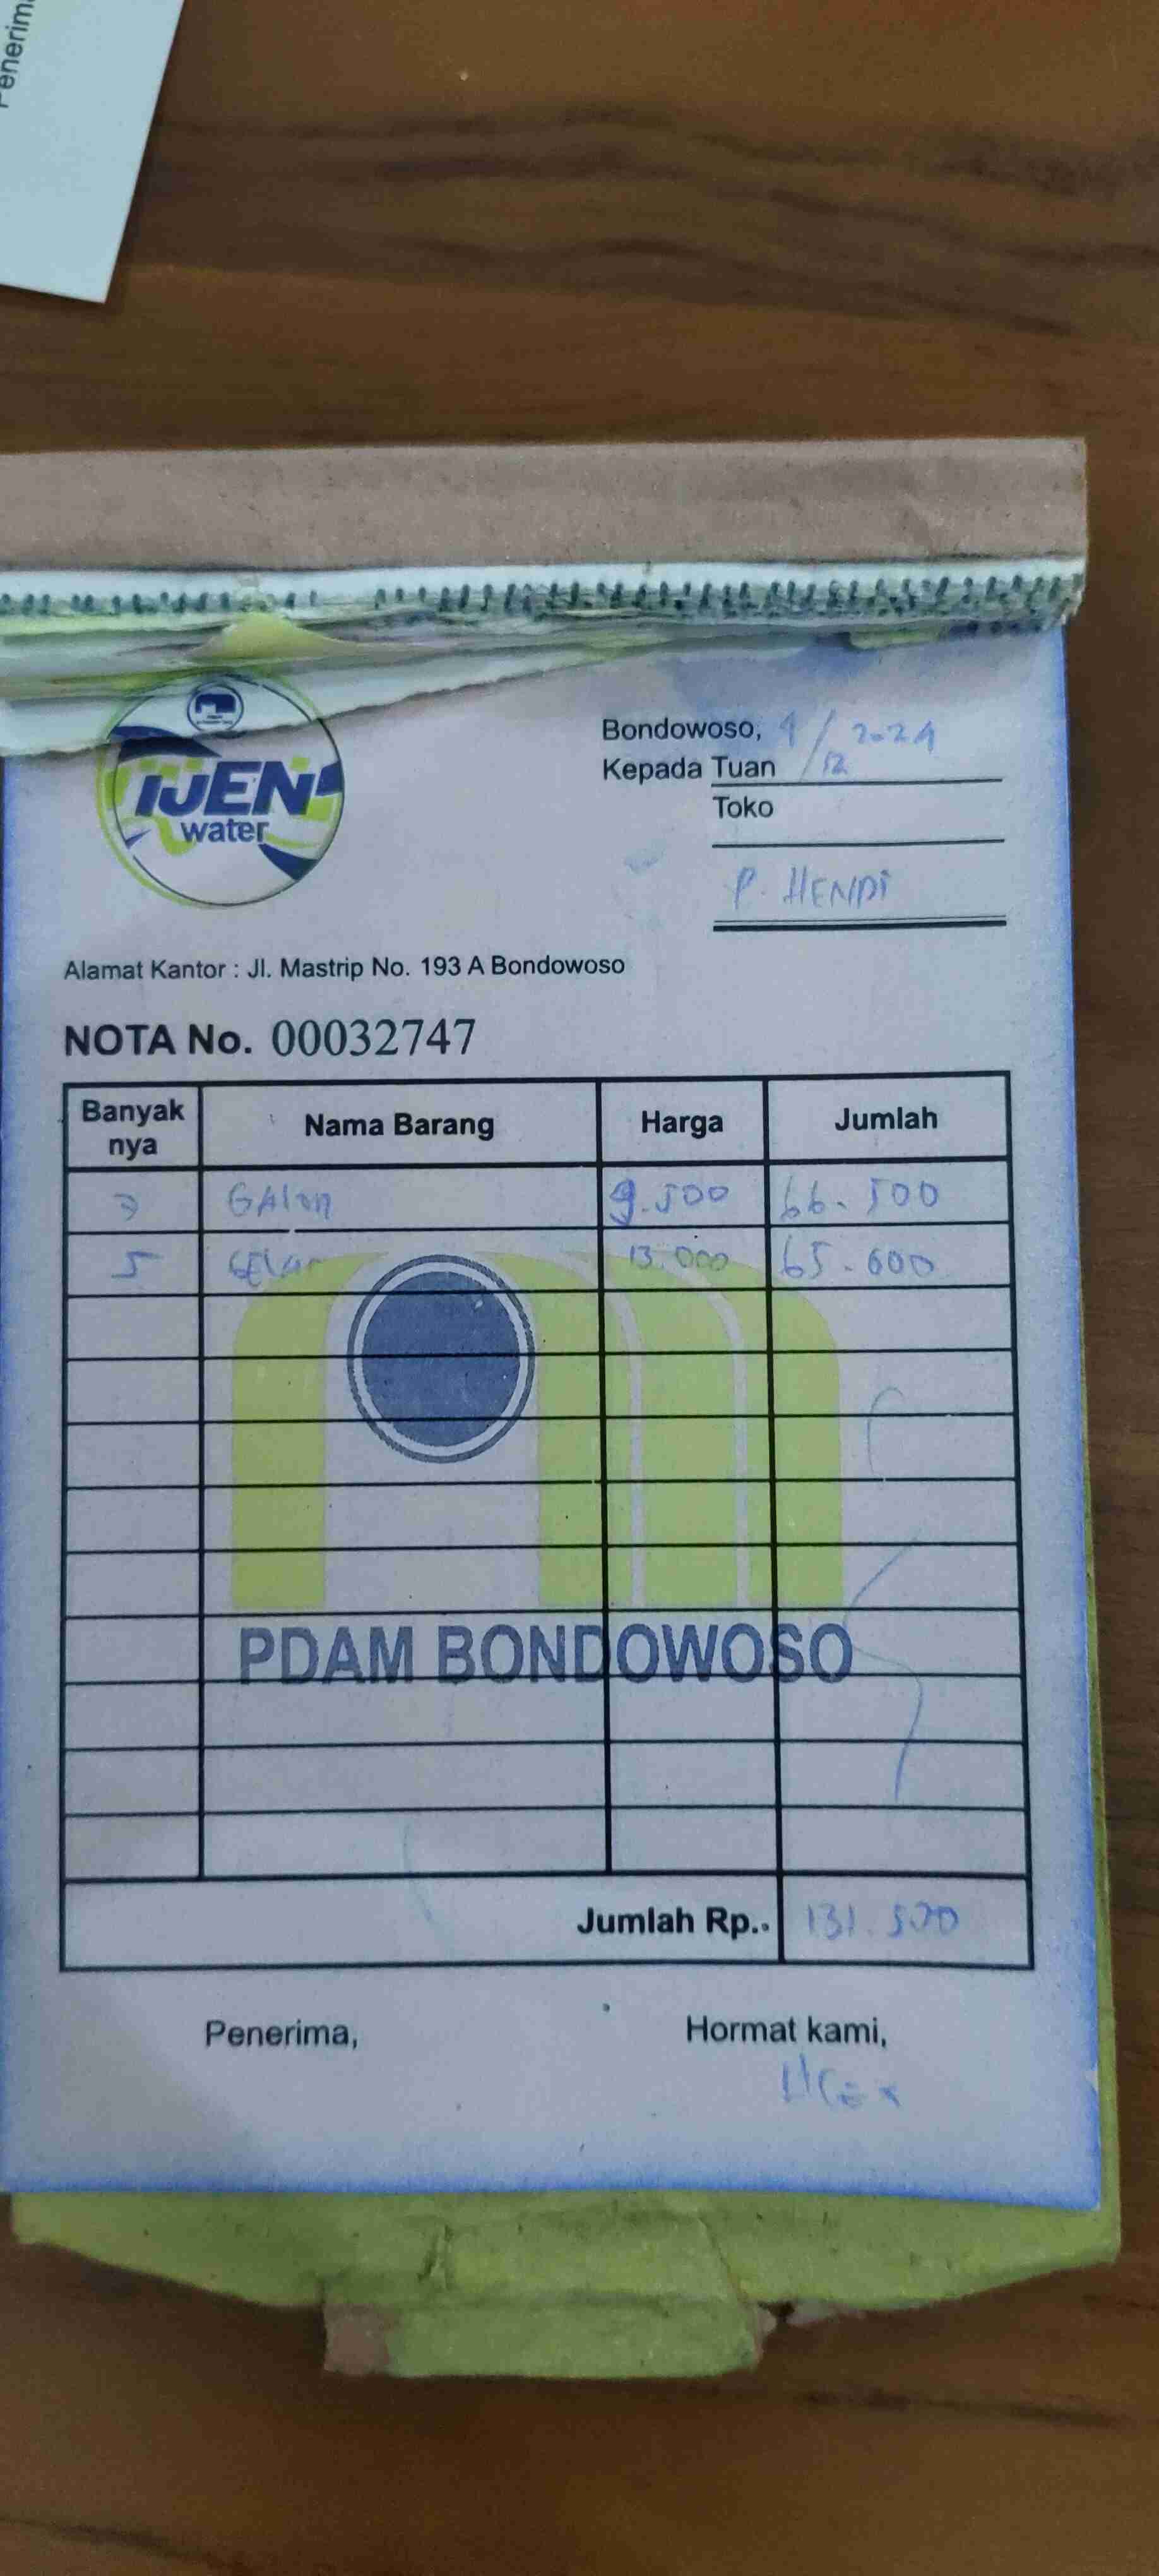 Penerima
IJEN
water
Bondowoso, 4/12 2024
Kepada Tuan
Toko
P. HENDI
Alamat Kantor : Jl. Mastrip No. 193 A Bondowoso
NOTA No. 00032747
Banyak nya Nama Barang Harga Jumlah
7 GAlon 9.500 66.500
5 GELAS 13.000 65.000
PDAM BONDOWOSO
Jumlah Rp.. 131.500
Penerima, Hormat kami,